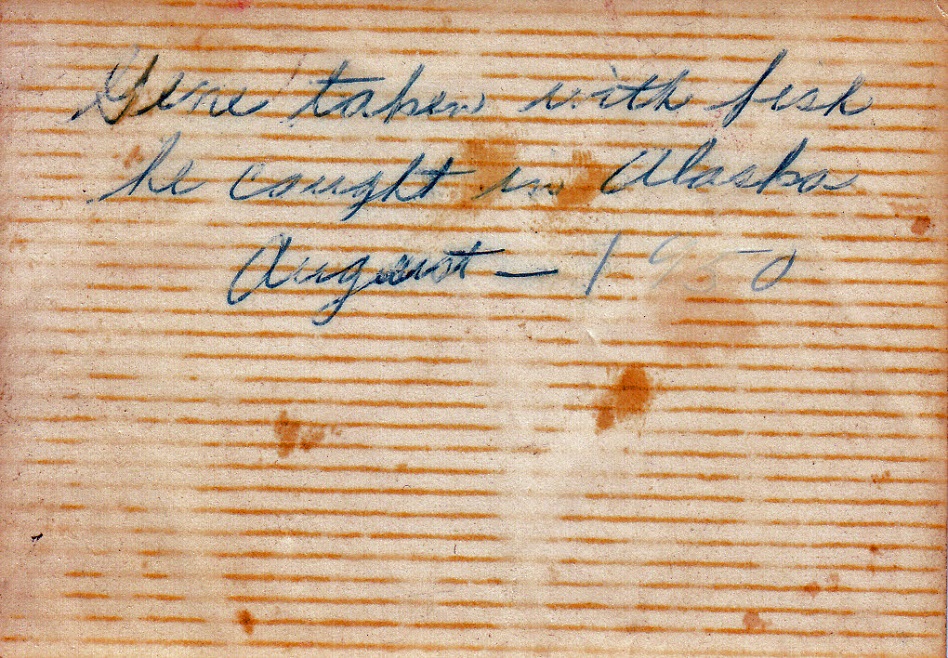 Gene taken with fish
he caught in Alaska
August — 1950